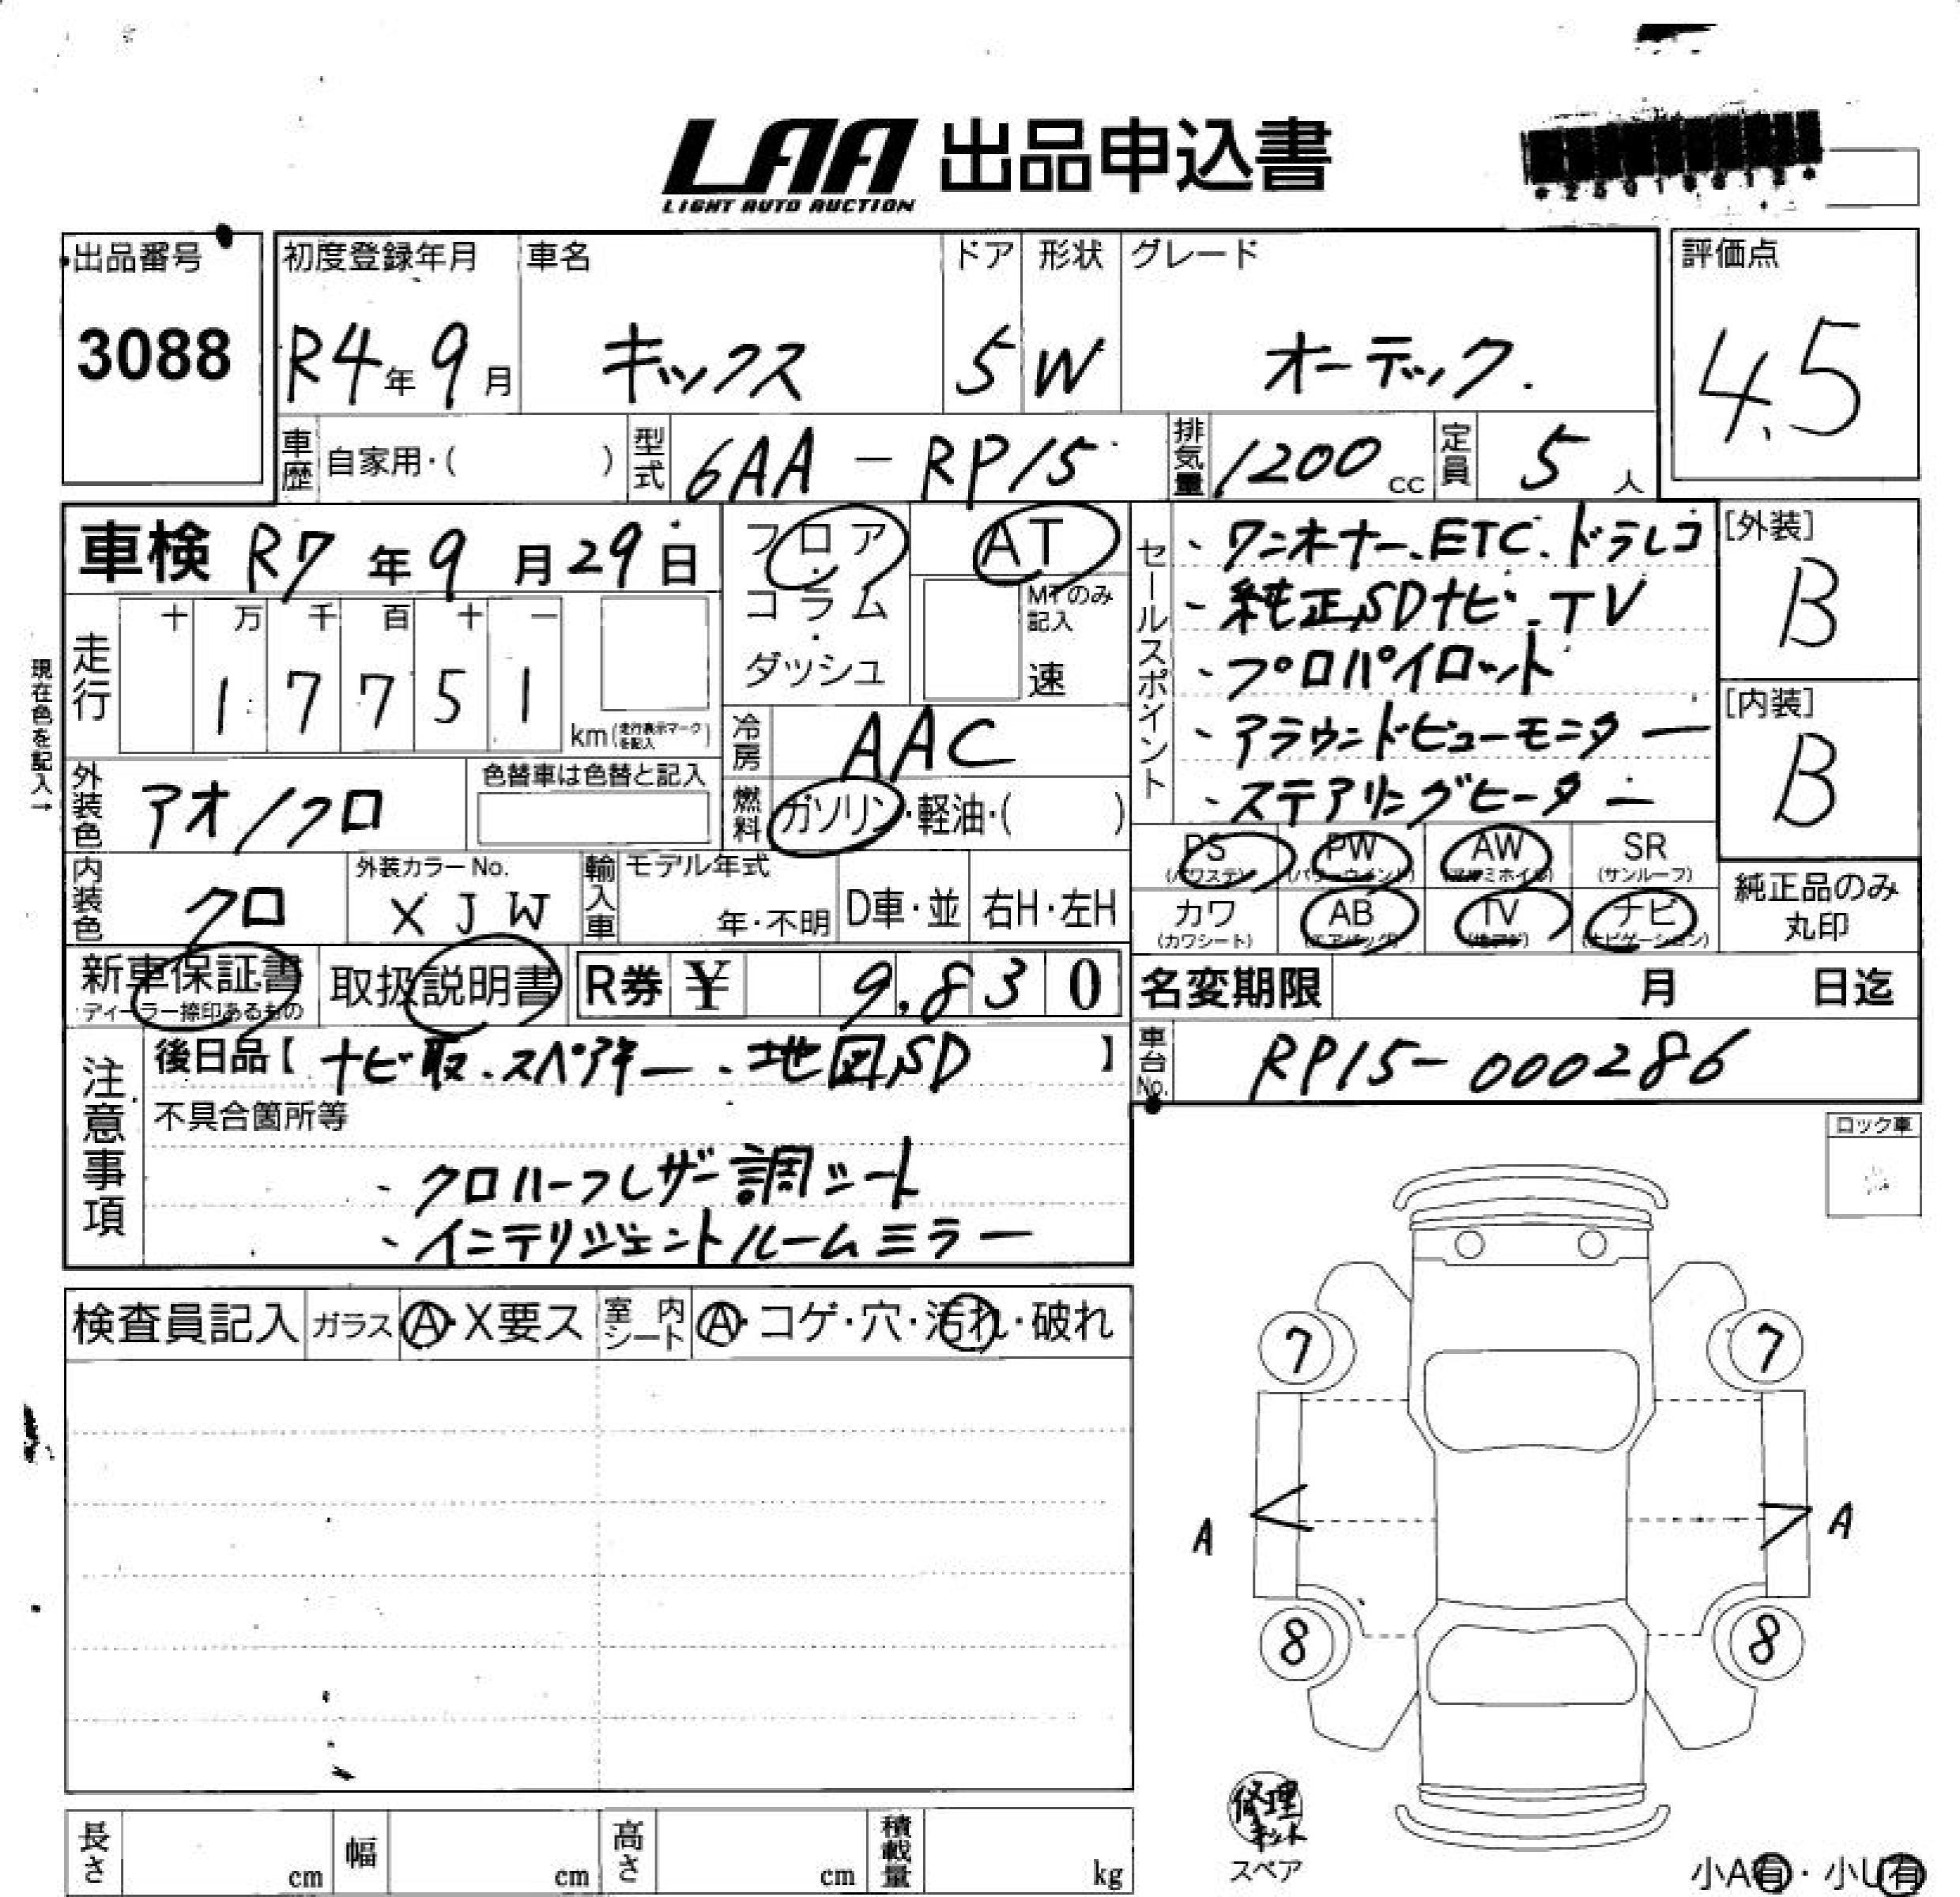 LAA 出品申込書
LIGHT AUTO AUCTION
出品番号 初度登録年月 車名 ドア 形状 グレード 評価点
3088 R4年9月 キックス 5 W オーテック. 4.5
車歴 自家用・( ) 型式 6AA-RP15 排気量 1200cc 定員 5人
車検 R7年9月29日 フロア・コラム・ダッシュ AT MTのみ記入 速
現在色を記入→
走行 十 万 千 百 十 一
1 7 7 5 1 km(走行表示マークを記入)
セールスポイント
、ワンオーナー、ETC、ドラレコ
、純正SDナビ、TV
、プロパイロット
、アラウンドビューモニター
、ステアリングヒーター
[外装]
B
[内装]
B
冷房 AAC
外装色 アオ/クロ 色替車は色替と記入 燃料 ガソリン・軽油・( )
内装色 クロ 外装カラーNo. XJW 輸入車 モデル年式 年・不明 D車・並 右H・左H
PS (パワステ) PW (パワーウインド) AW (アルミホイル) SR (サンルーフ)
カワ (カワシート) AB (エアバッグ) TV (地デジ) ナビ (ナビゲーション)
純正品のみ
丸印
新車保証書 取扱説明書 R券 ¥ 9,830 名変期限 月 日迄
ディーラー捺印あるもの
注意事項 後日品【ナビ取、スペアキー、地図SD】 車台No. RP15-000286
不具合箇所等
、クロハーフレザー調シート
、インテリジェントルームミラー
ロック車
検査員記入 ガラス A・X要ス 室内シート A・コゲ・穴・汚れ・破れ
7 7
A A
8 8
修理
キット
スペア
長さ cm 幅 cm 高さ cm 積載量 kg
小A有・小U有